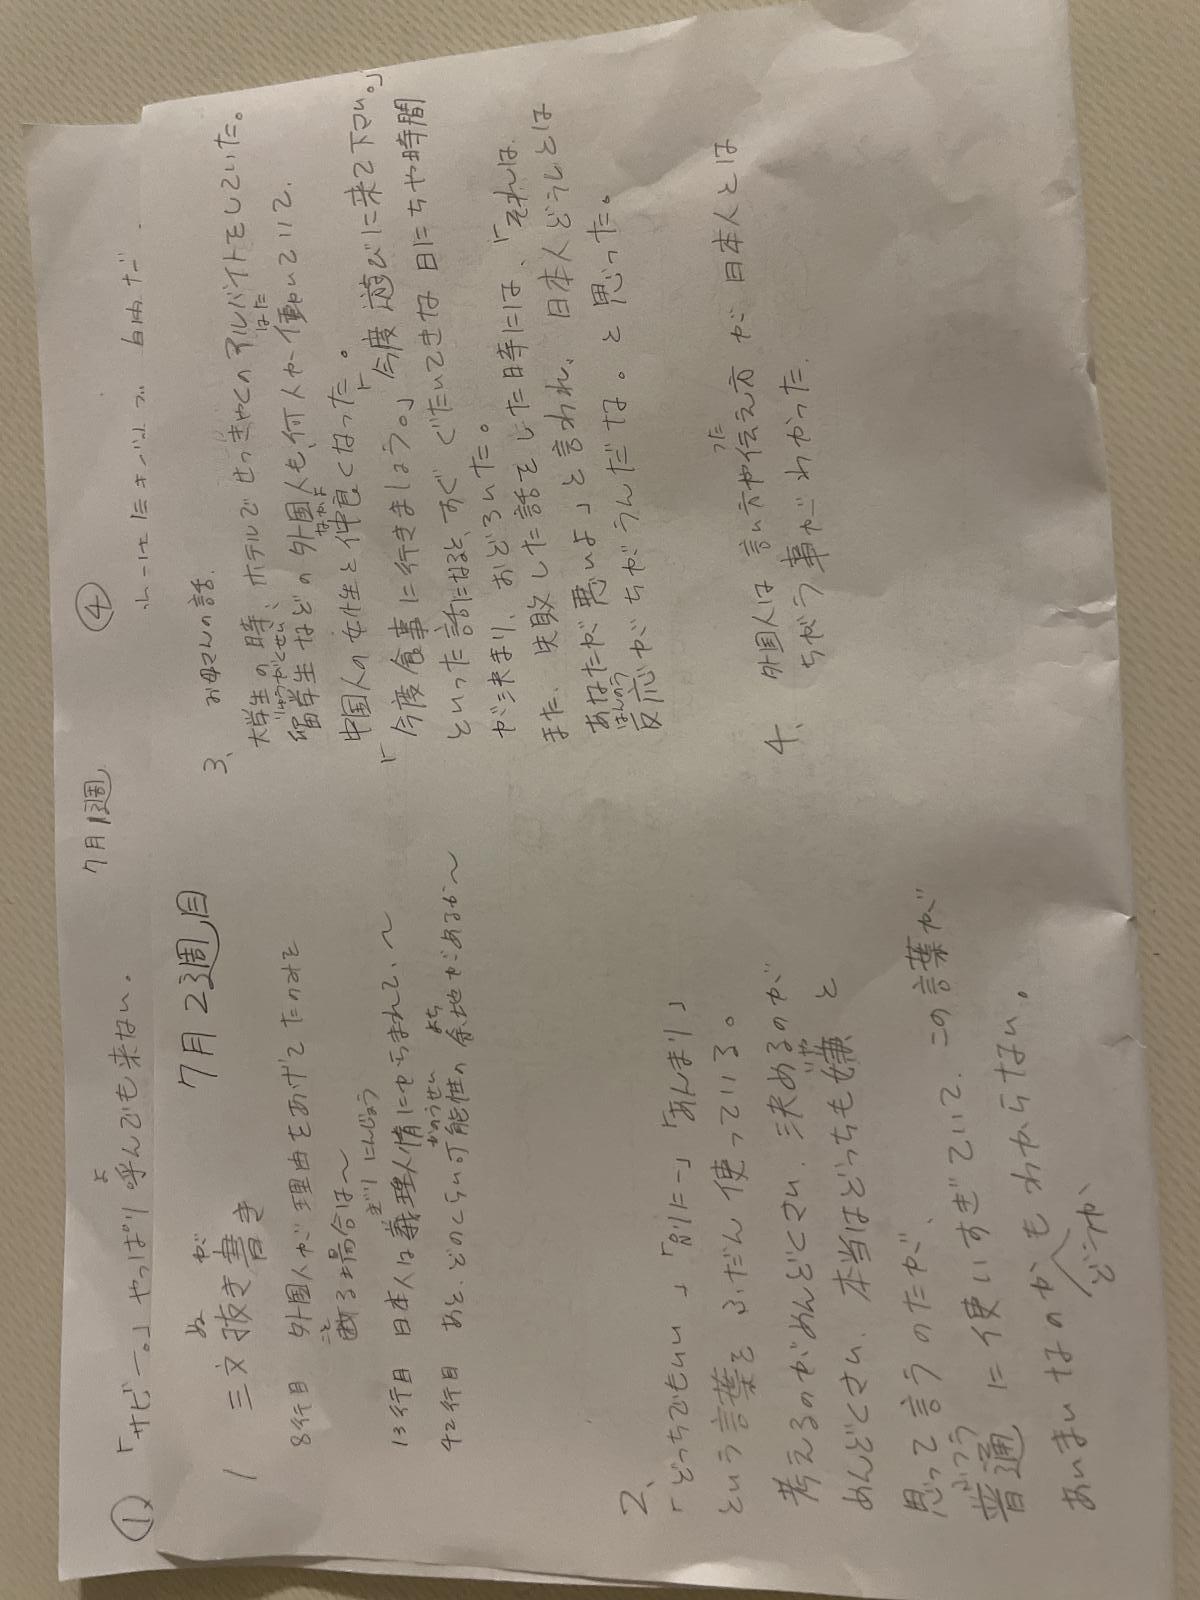 7月1週
① 「サビー。」やっぱり呼んでも来ない。
よ
④
7月23週目
1 三文抜き書き
ぬ が
8行目 外国人が理由をあげて
断る場合は〜
こと
13行目 日本人は義理人情にからまれて、〜
ぎり にんじょう
42行目 あと、どのくらい可能性の余地があるか〜
かのうせい よち
2、
「どっちでもいい」「別にー」「あんまり」
という言葉をふだん使っている。
考えるのがめんどくさい、決めるのが
めんどくさい、本当はどっちも嫌と
いや
思って言うのだが、
普通に使いすぎていて、この言葉が
ふつう
あいまいなのかどうかもわからない。
3、 お母さんの話。
大学生の時、ホテルでせっきゃくのアルバイトをしていた。
留学生などの外国人も、何人か働いていて、
りゅうがくせい はた
中国人の女性と仲良くなった。
なかよ
「今度食事に行きましょう。」「今度遊びに来て下さい。」
といった話になると、すぐぐたいてきな日にちや時間
が決まり、おどろいた。
また、失敗した話をした時には、「それは、
あなたが悪いよ」と言われ、日本人どうしとは
反応がちがうんだな。と思った。
はんのう
4、 外国人は言い方や伝え方が日本人とは
つた
ちがう事がわかった。